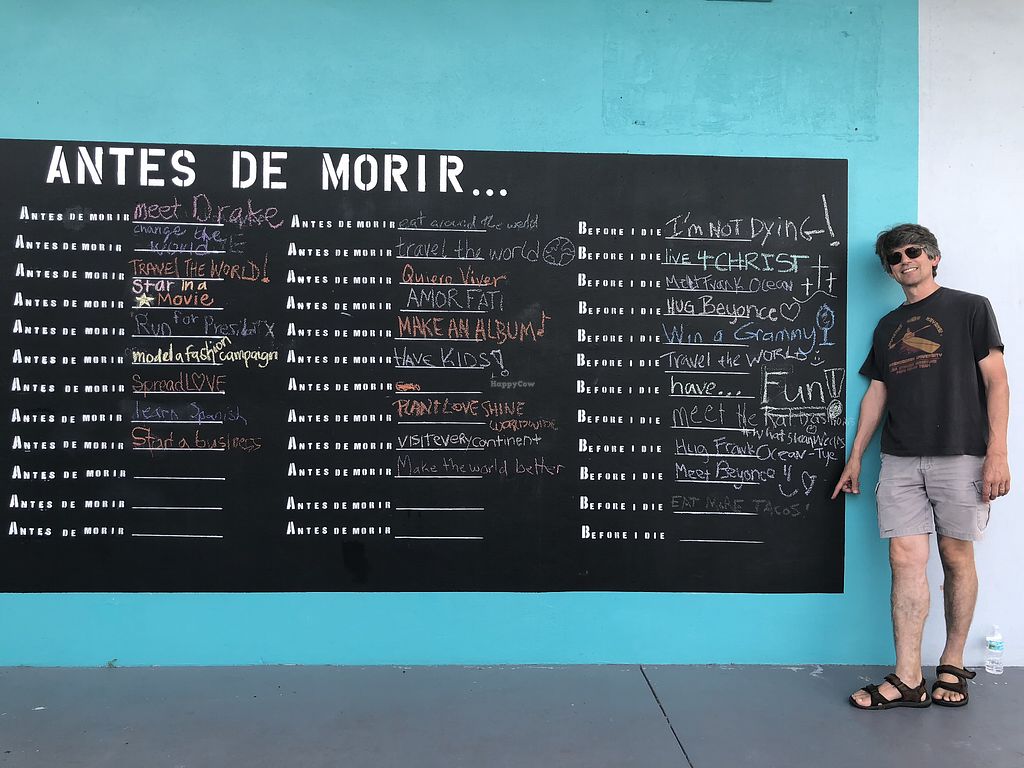 ANTES DE MORIR...
ANTES DE MORIR meet Drake
ANTES DE MORIR change the world
ANTES DE MORIR TRAVEL THE WORLD!
ANTES DE MORIR Star in a Movie
ANTES DE MORIR Run for President
ANTES DE MORIR model a fashion campaign
ANTES DE MORIR Spread L♡VE
ANTES DE MORIR learn Spanish
ANTES DE MORIR Start a business
ANTES DE MORIR
ANTES DE MORIR
ANTES DE MORIR
ANTES DE MORIR eat around the world
ANTES DE MORIR travel the world
ANTES DE MORIR Quiero Vivir
ANTES DE MORIR AMOR FATI
ANTES DE MORIR MAKE AN ALBUM♪
ANTES DE MORIR HAVE KIDS!
ANTES DE MORIR
ANTES DE MORIR PLANT LOVE SHINE WORLDWIDE
ANTES DE MORIR visit every continent
ANTES DE MORIR Make the world better
ANTES DE MORIR
ANTES DE MORIR
BEFORE I DIE I'm NOT Dying!
BEFORE I DIE live 4 CHRIST
BEFORE I DIE Meet Frank Ocean
BEFORE I DIE HUG Beyonce♡
BEFORE I DIE Win a Grammy
BEFORE I DIE Travel the WORLD
BEFORE I DIE have... Fun!
BEFORE I DIE meet the
BEFORE I DIE Hug Frank Ocean-Tye
BEFORE I DIE Meet Beyonce
BEFORE I DIE EAT MORE TACOS!
BEFORE I DIE
HappyCow